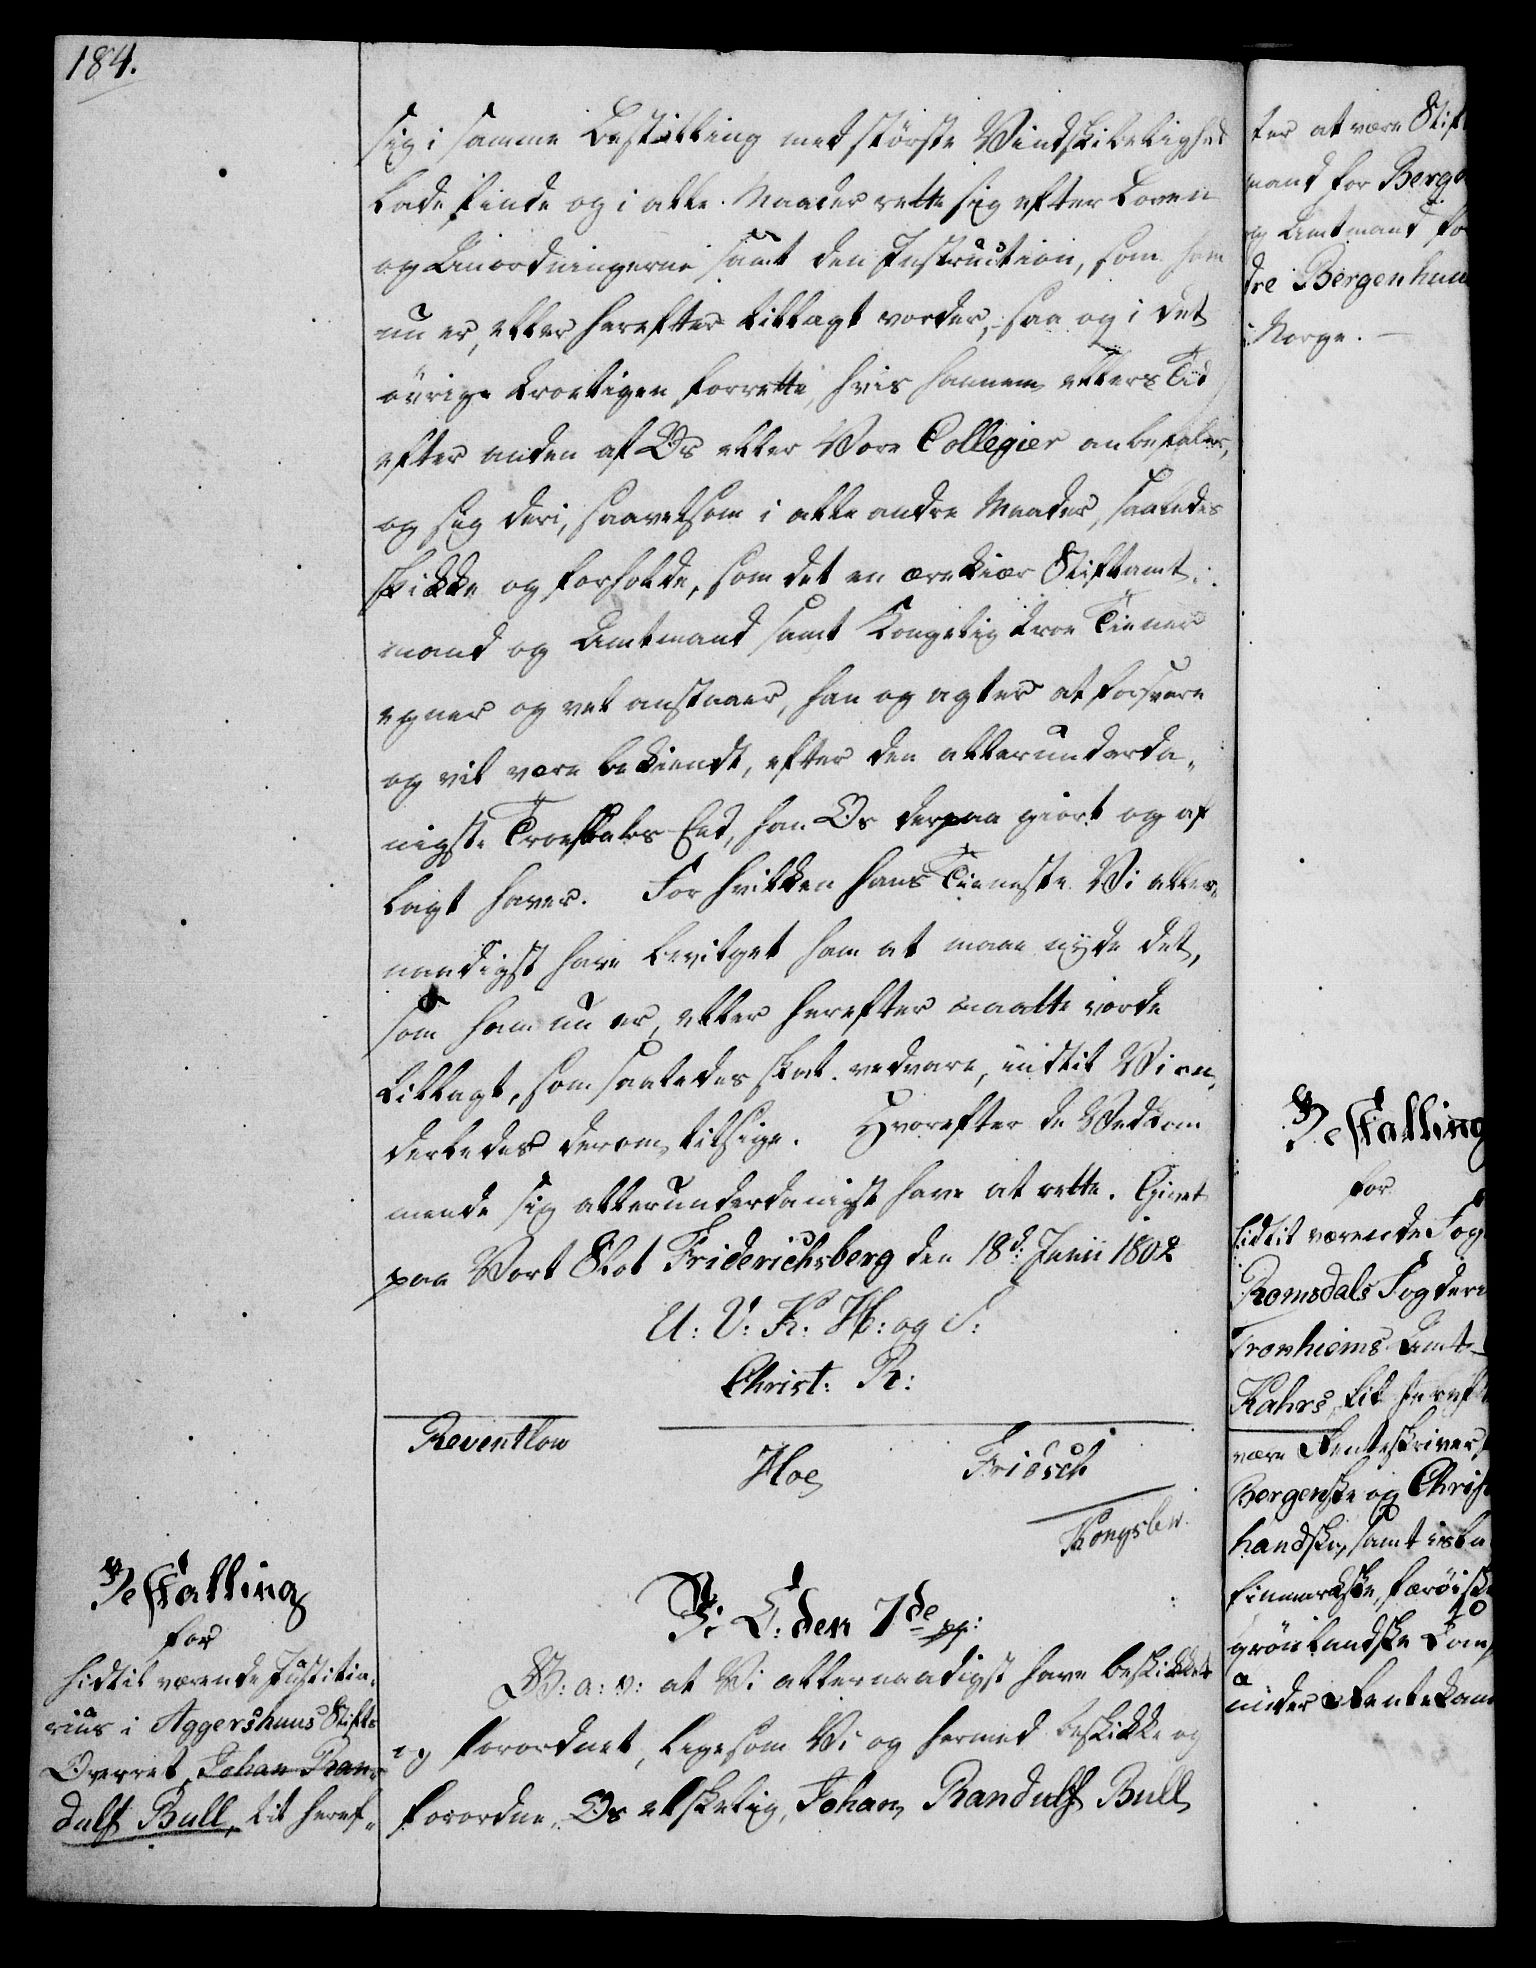 184.
sig i samme Bestilling med største Vindskibelighed
lade finde og i alle Maader rette sig efter Loven
og Anordningerne samt den Instruction, som ham
nu er, eller herefter tillagt vorder, saa og i det
øvrige troeligen forrette, hvis hannem ellers Tid
efter anden af Os eller Vore Collegier anbefales,
og sig deri, saavelsom i alle andre Maader, saaledes
skikke og forholde, som det en ærekiær Stiftamt:
mand og Amtmand samt Kongelig troe Tiener
egner og vel anstaaer, han og agter at forsvare
og vil være bekiendt, efter den allerunderda„
nigste Troeskabs Eed, han Os derpaa giort og af
lagt haver. For hvilken hans Tieneste Vi aller„
naadigst have bevilget ham at maae nyde det,
som ham nu er, eller herefter maatte vorde
tillagt, som saaledes skal vedvare, indtil Vi an„
derledes derom tilsige. Hvorefter de Vedkom
mende sig allerunderdanigst have at rette. Givet
paa Vort Slot Friderichsberg den 18d: Junii 1802
U: V: K: H: og S:
Christ: R:
Reventlow
Hoe
Friesch
Kongslew.
Bestalling
for
hidtil værende Justitia„
rius i Aggershuus Stifts
Overret, Johan Ran„
dulf Bull, til heref„
Vi C: den 7de pp:
G: a: v: at Vi allernaadigst have beskikket
og forordnet, ligesom Vi og hermed beskikke og
forordne, Os elskelig, Johan Randulf Bull
ter at være Stift
mand for Berge
og Amtmand fo
dre Bergenhuu
i Norge. —
Bestalling
for
hidtil værende Fog
Romsdals Fogderi
Tronhiems Amt
Kahrs, til heref
være Renteskriver
Bergenske og Chris
handske, samt isla
finmarkske, færøiske
grønlandske Com
under Rentekam